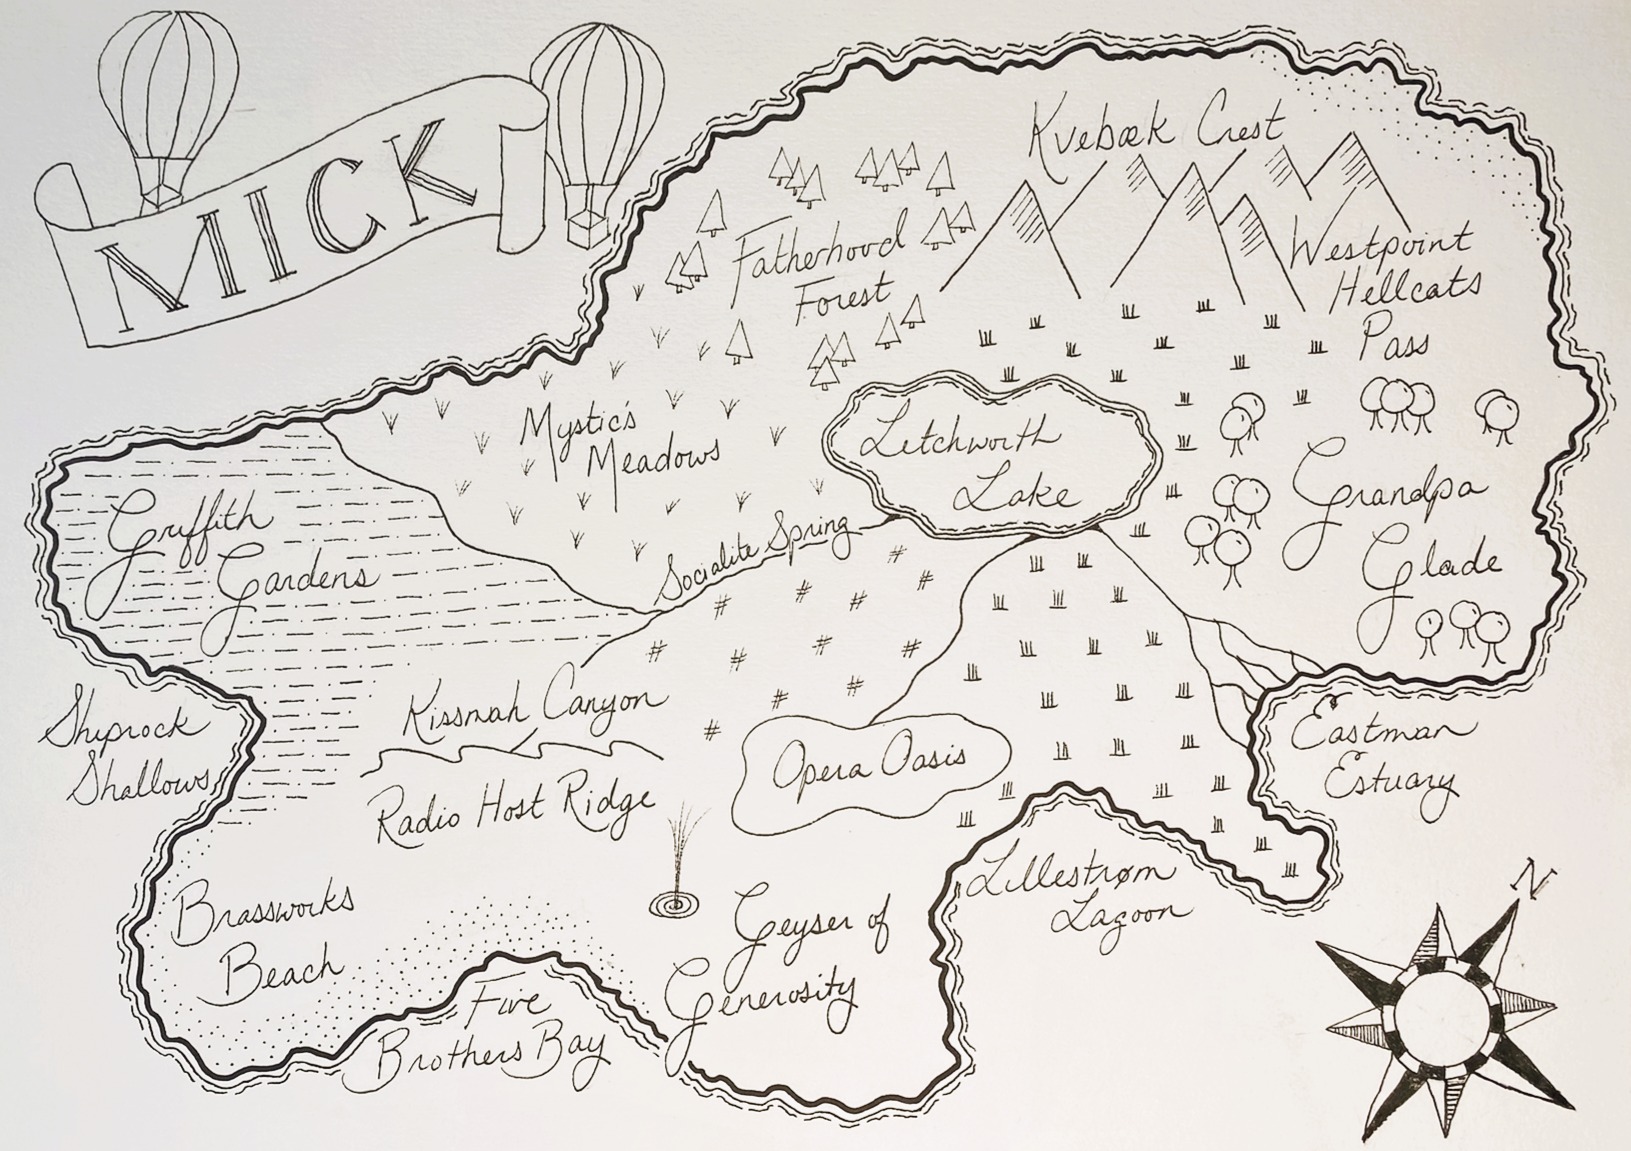 MICK
Kvebæk Crest
Fatherhood
Forest
Westpoint
Hellcats
Pass
Mystic's
Meadows
Letchworth
Lake
Grandpa
Glade
Griffith
Gardens
Socialite Spring
Kissmah Canyon
Shiprock
Shallows
Radio Host Ridge
Opera Oasis
Eastman
Estuary
Brassworks
Beach
Geyser of
Generosity
Lillestrøm
Lagoon
Five
Brothers Bay
N